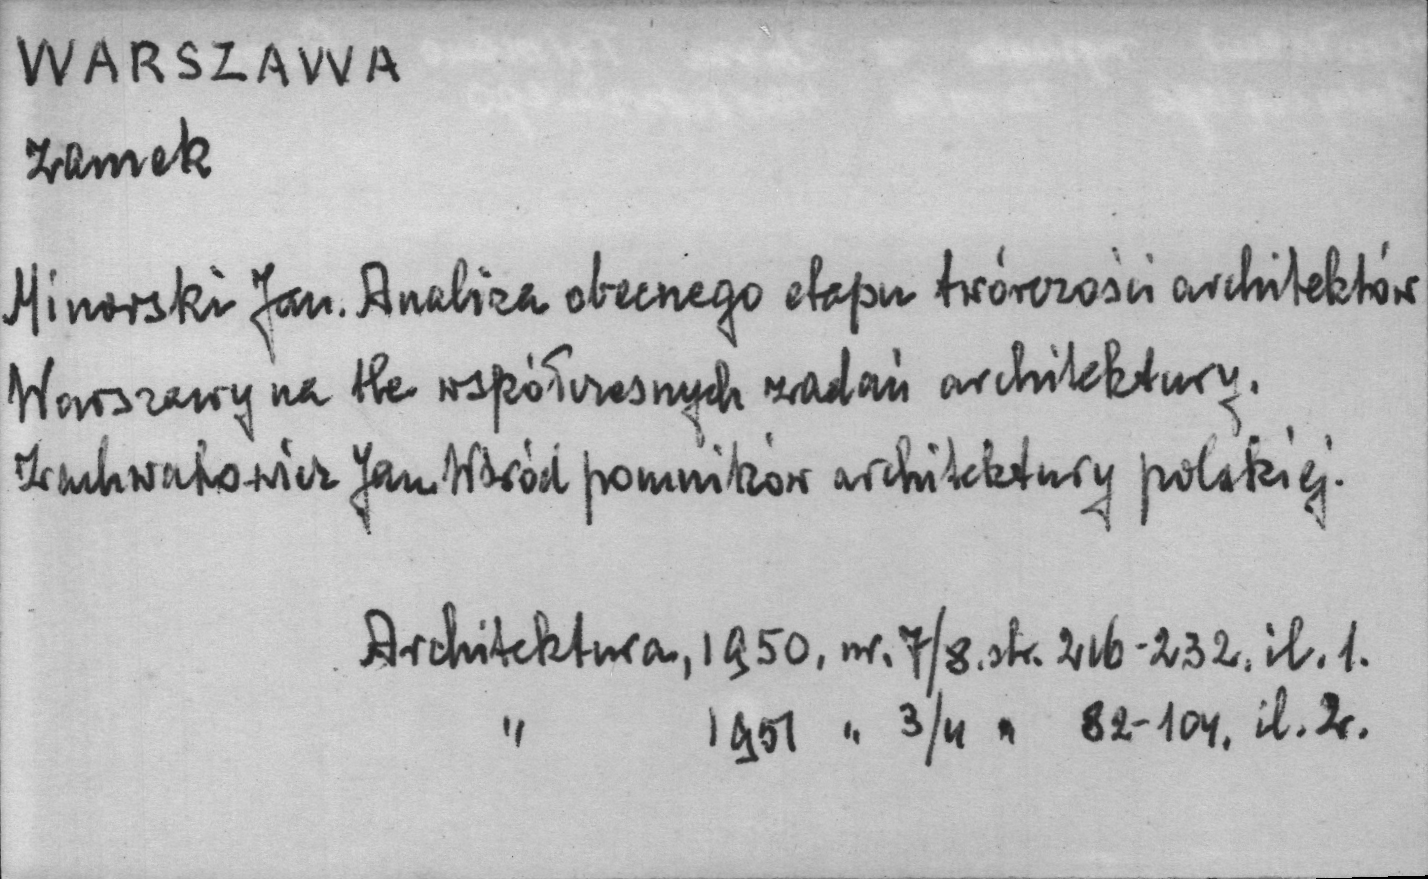 WARSZAWA
Zamek
Minorski Jan. Analiza obecnego etapu twórczości architektów
Warszawy na tle współczesnych zadań architektury.
Zachwatowicz Jan. Wśród pomników architektury polskiej.
Architektura, 1950, nr. 7/8. str. 216-232, il. 1.
" 1951 " 3/4 " 82-104, il. 2.